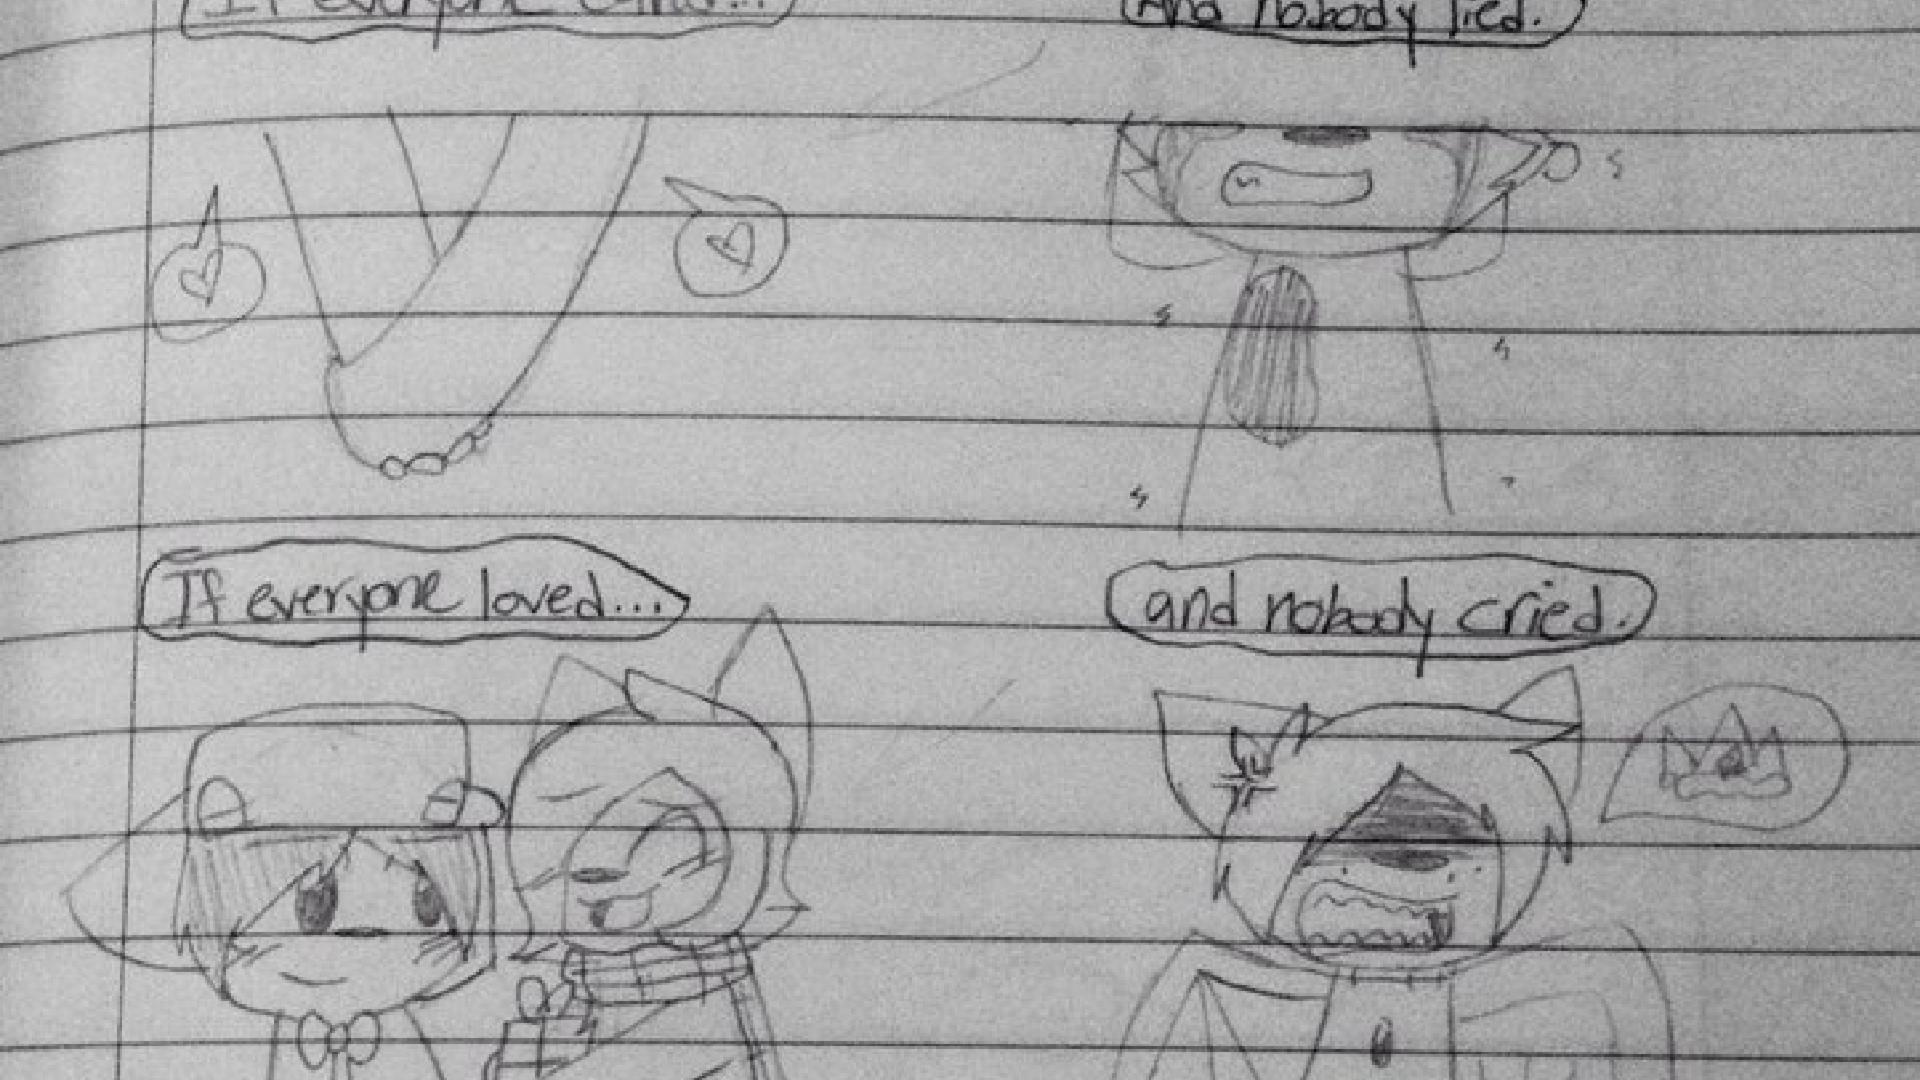 If everyone
And nobody lied.
If everyone loved...
and nobody cried.